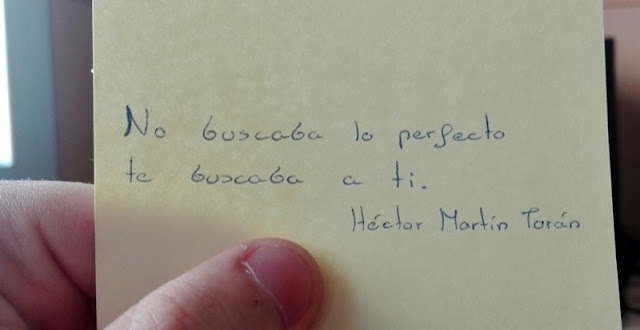 No buscaba lo perfecto
te buscaba a ti.
Héctor Martín Torán